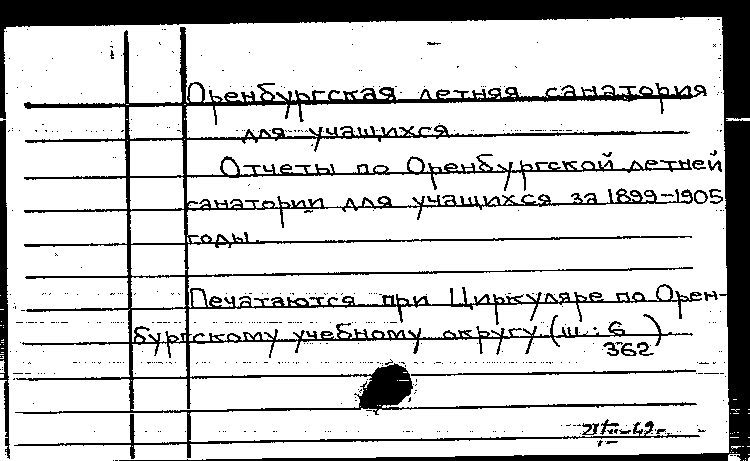 Оренбургская летняя санатория
для учащихся.
Отчеты по Оренбургской летней
санатории для учащихся за 1899-1905
годы.
Печатаются при Циркуляре по Орен-
бургскому учебному округу (ш. 6
362)